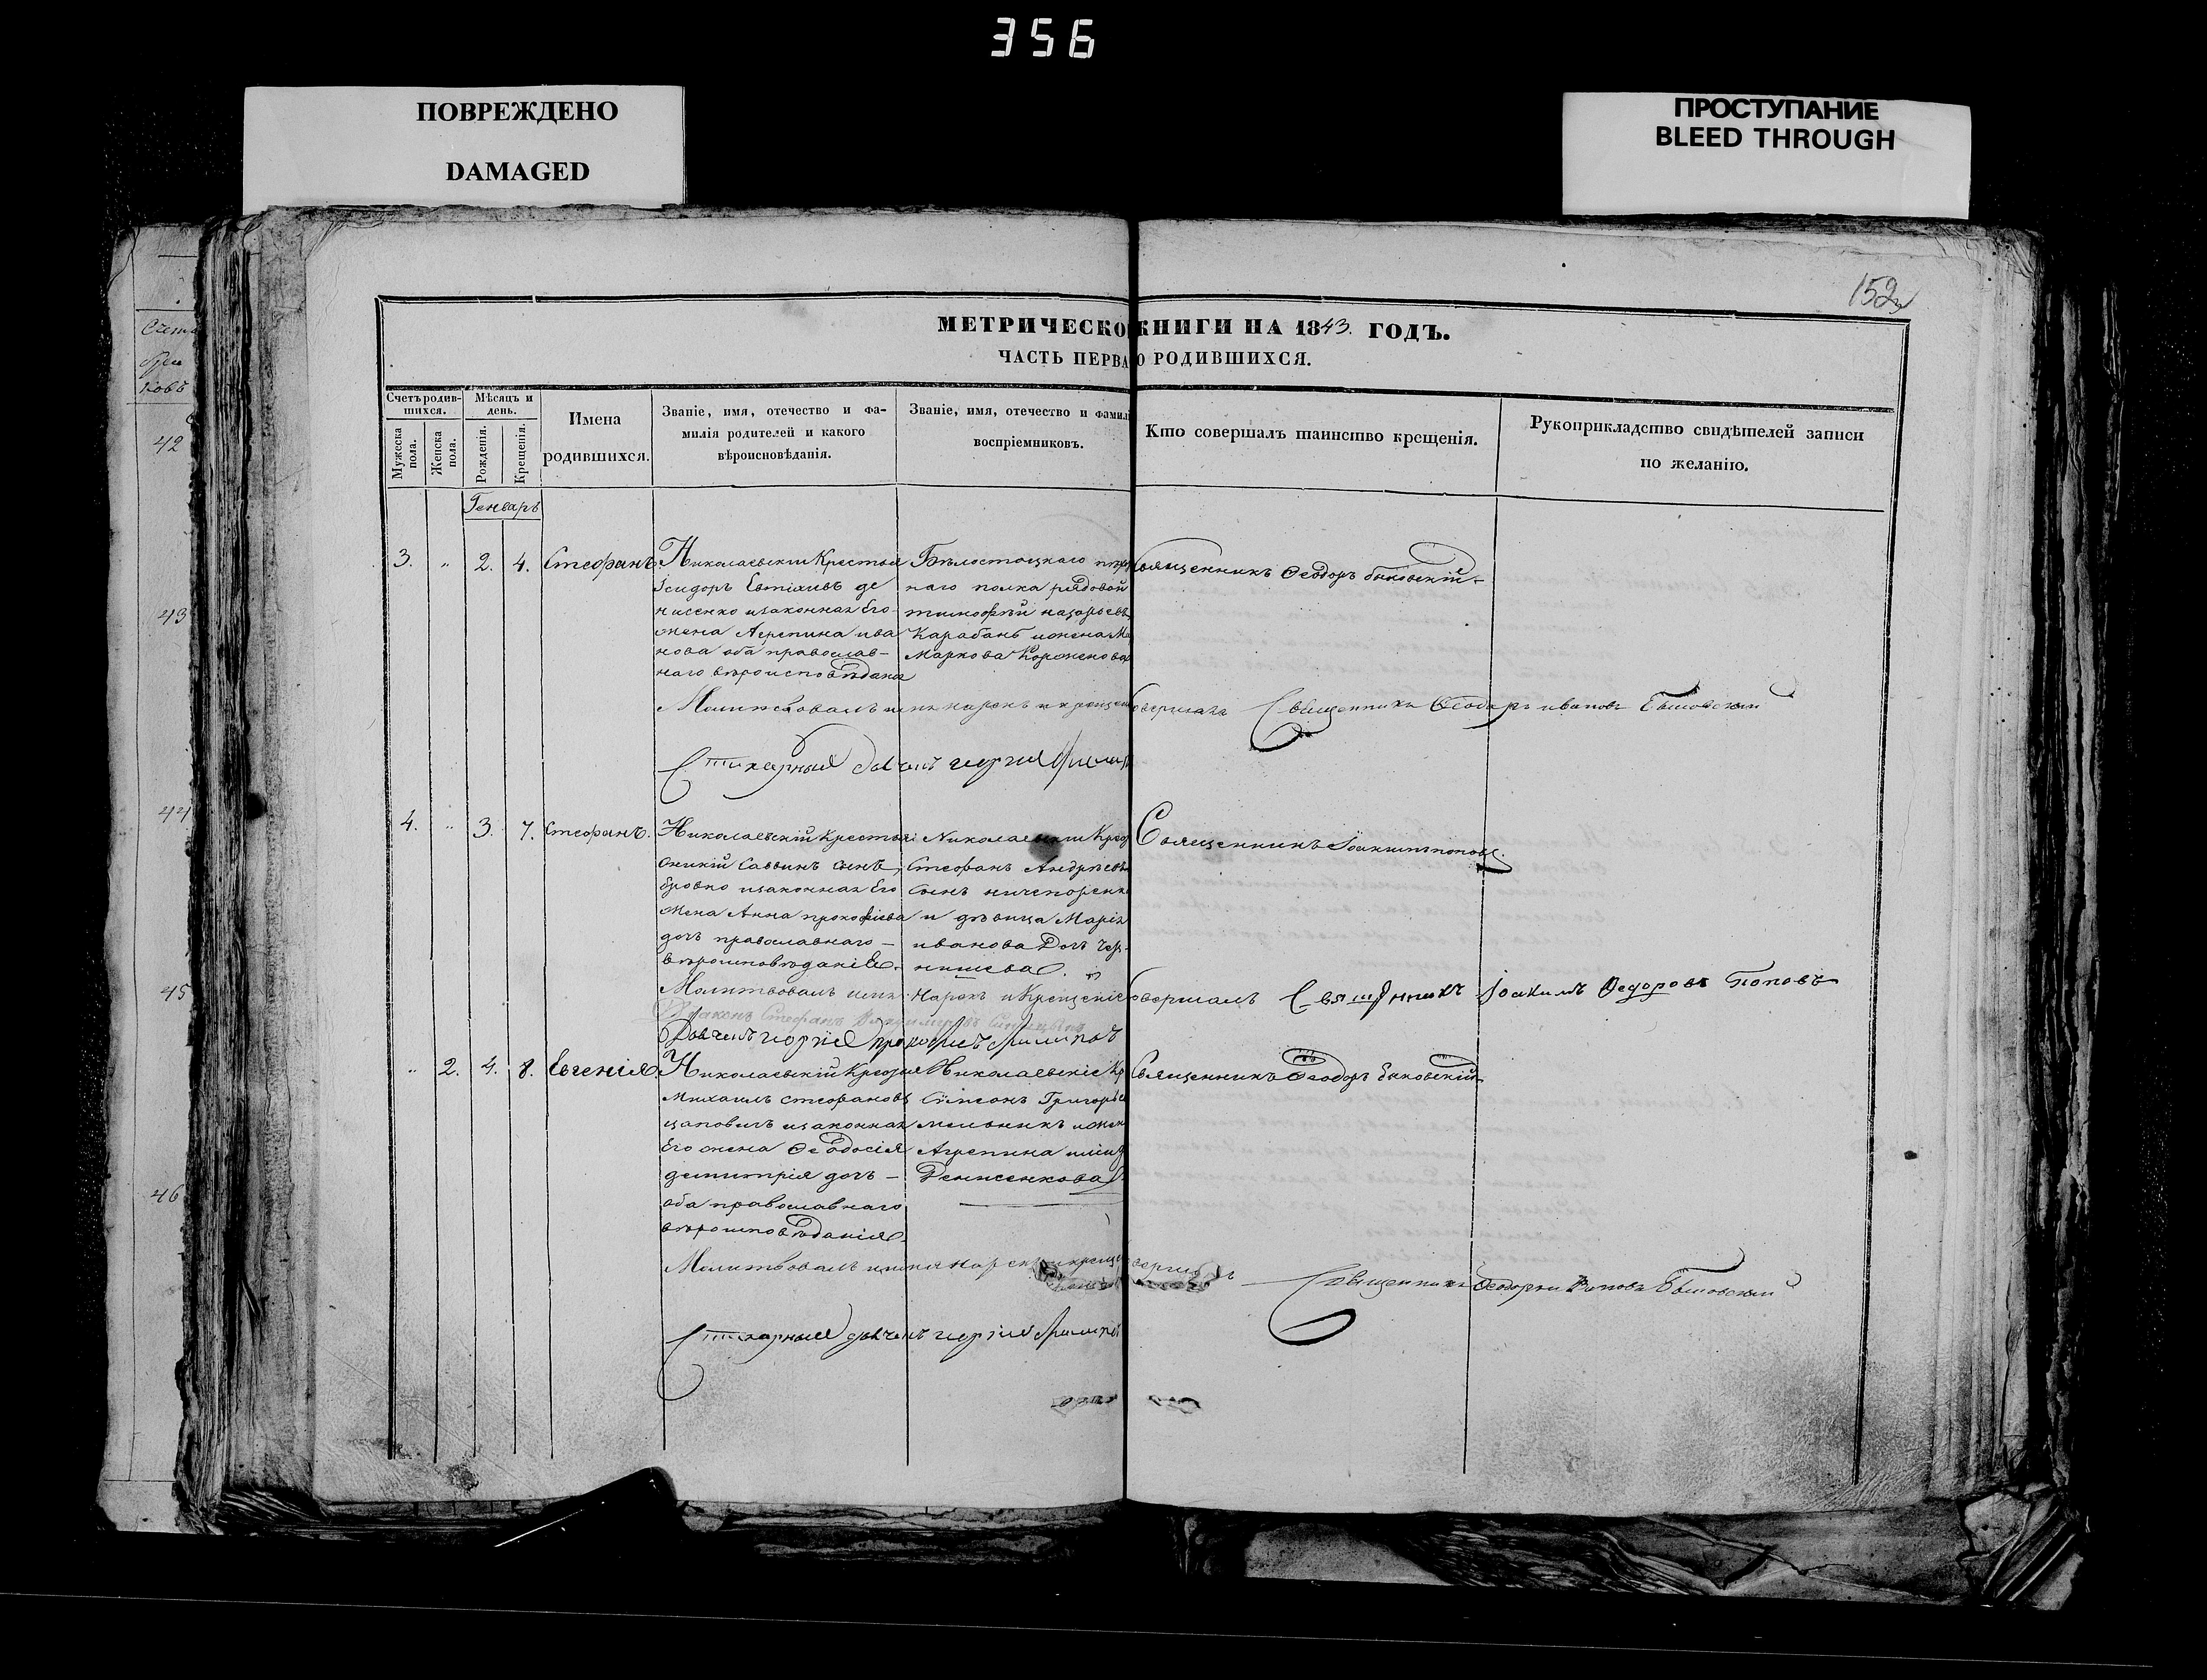 356
ПОВРЕЖДЕНО
DAMAGED
ПРОСТУПАНИЕ
BLEED THROUGH
152
МЕТРИЧЕСКО КНИГИ НА 1843. ГОДЪ.
ЧАСТЬ ПЕРВА О РОДИВШИХСЯ.
Счетъ родив-
шихся.
Мужеска
пола.
Женска
пола.
Мѣсяцъ и
день.
Рожденія.
Крещенія.
Имена
родившихся.
Званіе, имя, отечество и фа-
милія родителей и какого
вѣроисповѣданія.
Званіе, имя, отечество и фамил
воспріемниковъ.
Кто совершалъ таинство крещенія.
Рукоприкладство свидѣтелей записи
по желанію.
42
43
44
45
46
Генваръ
3. " 2. 4. Стефанъ
Николаевскій Крестья
Ісидоръ Евтіхіевъ де
нисенко изаконная Его
жена Агрепина ива
нова оба православ-
наго вѣроисповѣданія
Бѣлостоцкаго пѣхо
наго полка рядовой
тимофѣй назарьевъ
Карабанъ ижена
Маркова Корженкова
Священникъ Ѳеодоръ Быковскій
Молитвовалъ имя нарекъ и крещен овершалъ Священникъ Ѳеодоръ ивановъ Быковскій
Стихарный Дьячекъ
4. " 3. 7. Стефанъ.
Николаевскій Крестья
Саввинъ сынъ
бровко изаконная Его
жена Анна прокофіева
дочь православнаго –
вѣроисповѣданія.
Николаевскій Крес
Стефанъ Андрѣевъ
Сынъ ничепоренк
и дѣвица Марія
иванова Дочь чер-
нишева.
Священникъ Іоакимъ поповъ.
Молитвовалъ имя Нарекъ и Крещеніе овершалъ Священникъ Іоакимъ Ѳедоровъ Поповъ
Діаконъ Стефанъ
Дьячекъ
" 2. 4. 8. Евгенія.
Николаевскій Крестья
Михаилъ Стефановъ
изаконная
Его жена Ѳеодосія
димитрія дочь –
оба православнаго
вѣроисповѣданія.
Николаевскіе Кр
Симеонъ Григорьев
мельникъ ижен
Агрепина
Денисенкова
Священникъ Ѳеодоръ Быковскій
Молитвовалъ имя нарекъ икреще вершалъ Священникъ Ѳеодоръ Ивановъ Быковскій
Стихарный дьячекъ